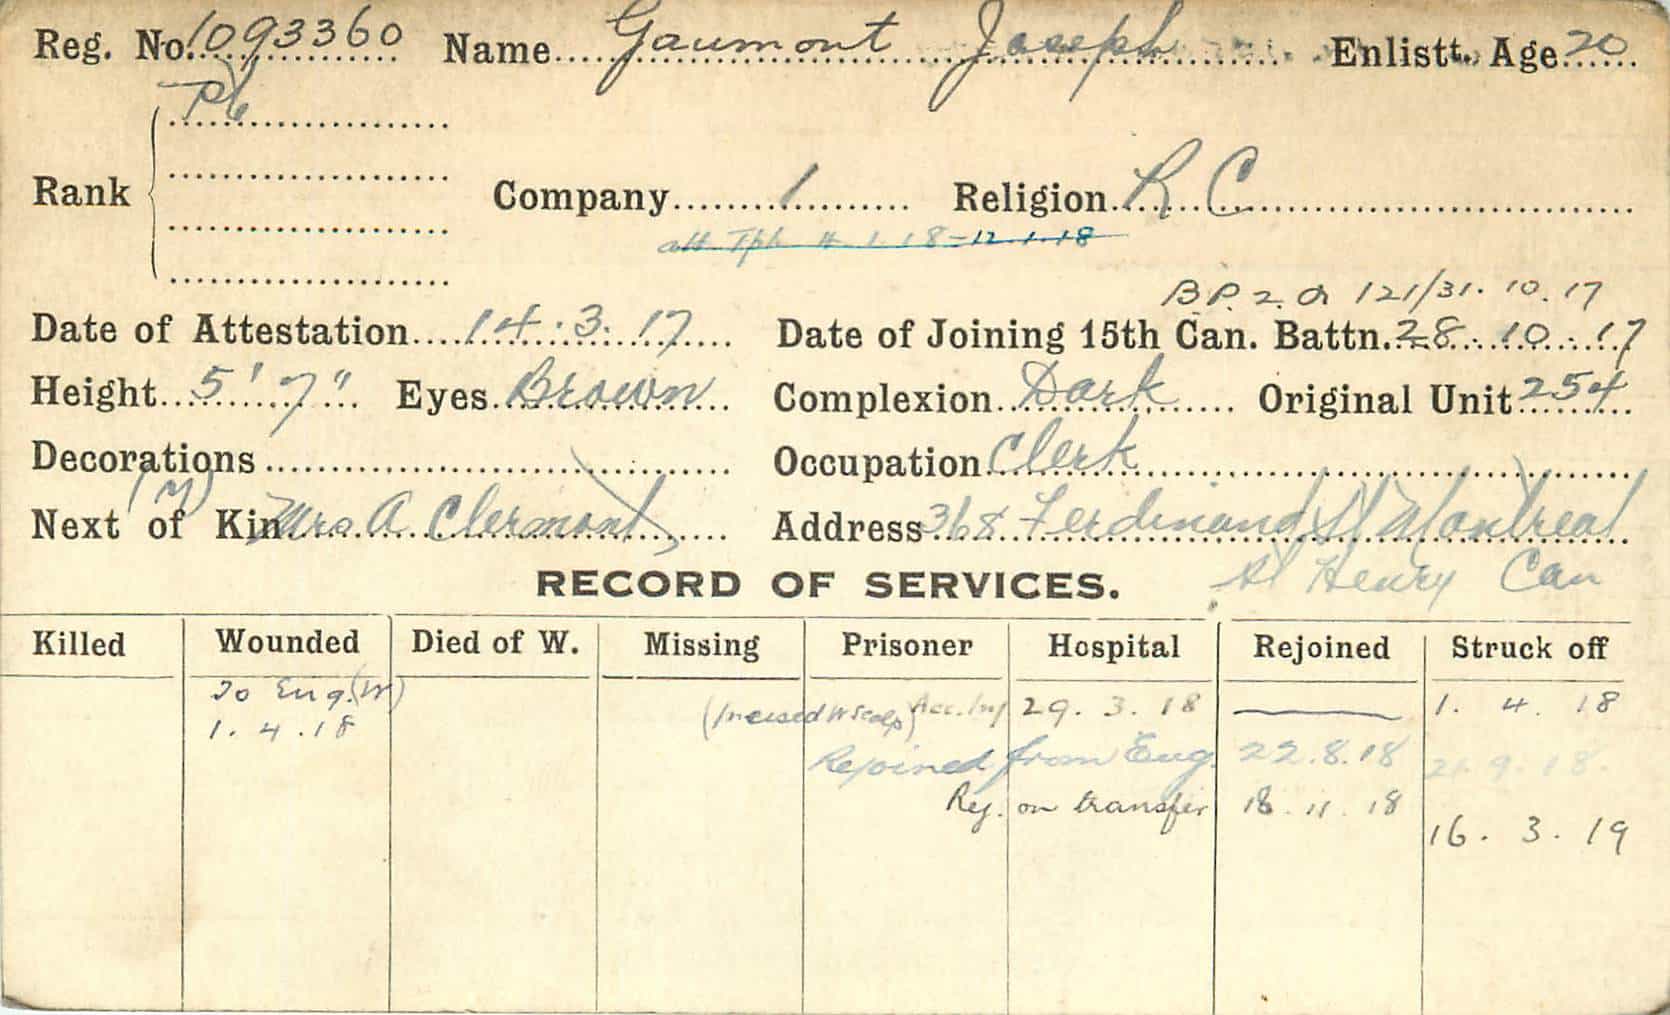 Reg. No. 1093360 Name Gaumont Joseph Enlistt. Age 20
Rank
Company 1 Religion R C
att. Tph 4.1.18-12.1.18
B.P. 2. O 121/31.10.17
Date of Attestation 14.3.17 Date of Joining 15th Can. Battn. 28.10.17
Height 5' 7" Eyes Brown Complexion Dark Original Unit 254
Decorations Occupation Clerk
(M)
Next of Kin Mrs A. Clermont Address 368 Ferdinand St Montreal
St Henry Can
RECORD OF SERVICES.
Killed Wounded Died of W. Missing Prisoner Hospital Rejoined Struck off
To Eng. (W) (Incised W Scalp) Acc. Inj 29.3.18 1.4.18
1.4.18
Rejoined from Eng. 22.8.18 21.9.18.
Rej. on transfer 18.11.18
16.3.19